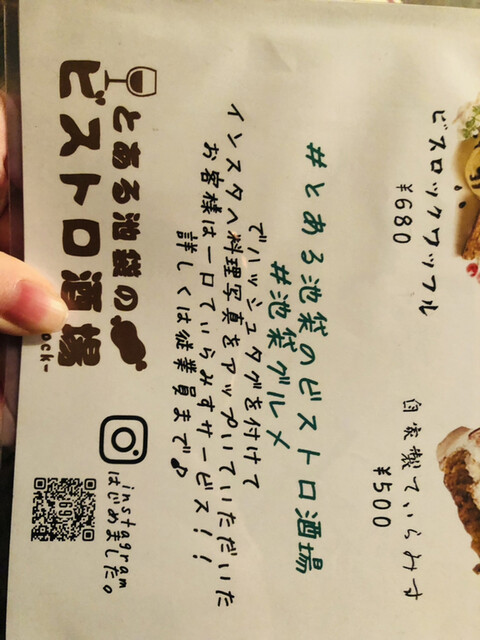 ビスロックワッフル
¥680
自家製てぃらみす
¥500
#とある池袋のビストロ酒場
#池袋グルメ
でハッシュタグを付けて
インスタへ料理写真をアップいていただいた
お客様は一口てぃらみすサービス!!
詳しくは従業員まで♪
とある池袋の
ビストロ酒場
ock-
instagram
はじめました。